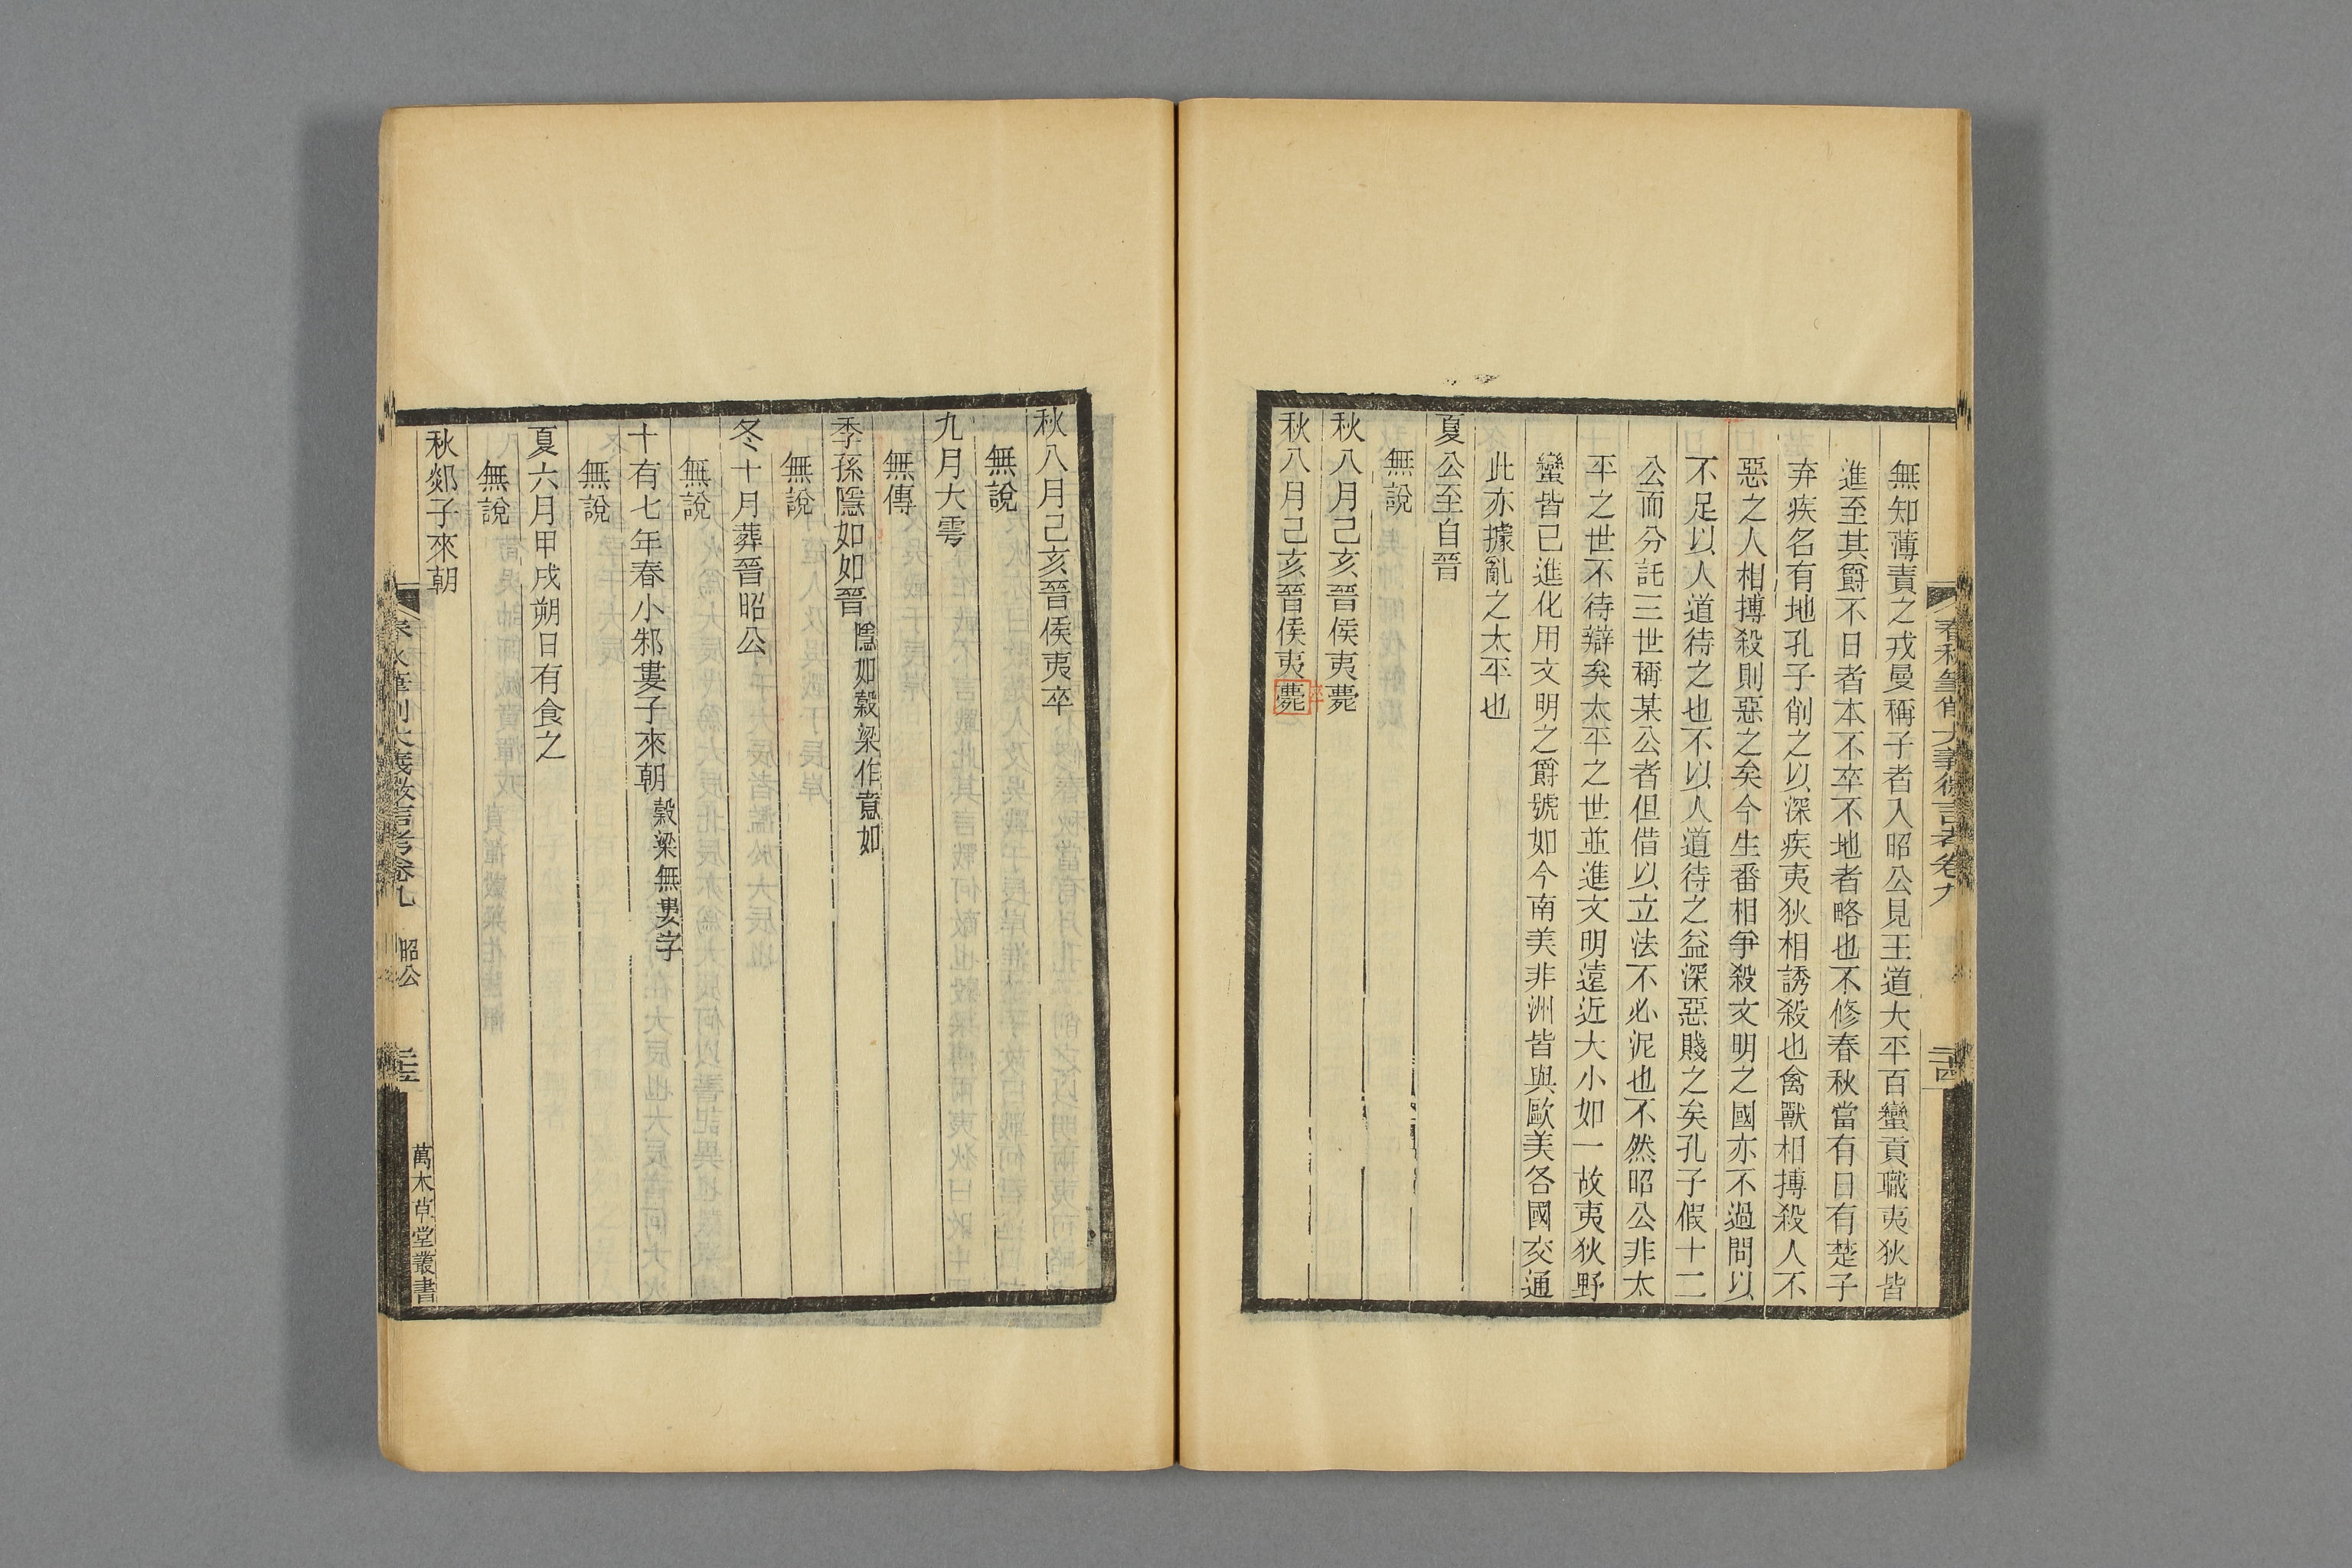 春秋筆削大義微言考卷九
二十四
無知薄責之戎曼稱子者入昭公見王道大平百蠻貢職夷狄皆
進至其爵不日者本不卒不地者略也不修春秋當有日有楚子
弃疾名有地孔子削之以深疾夷狄相誘殺也禽獸相搏殺人不
惡之人相摶殺則惡之矣今生番相爭殺文明之國亦不過問以
不足以人道待之也不以人道待之益深惡賤之矣孔子假十二
公而分託三世稱某公者但借以立法不必泥也不然昭公非太
平之世不待辯矣太平之世並進文明遠近大小如一故夷狄野
蠻皆已進化用文明之爵號如今南美非洲皆與歐美各國交通
此亦據亂之太平也
夏公至自晉
無說
秋八月己亥晉侯夷薨
卒
秋八月己亥晉侯夷薨
秋八月己亥晉侯夷卒
無說
九月大雩
無傳
季孫隱如如晉隱如穀梁作意如
無說
冬十月葬晉昭公
無說
十有七年春小邾婁子來朝穀梁無婁字
無說
夏六月甲戌朔日有食之
無說
秋郯子來朝
春秋筆削大義微言考卷九
昭公
二十五
萬木草堂叢書